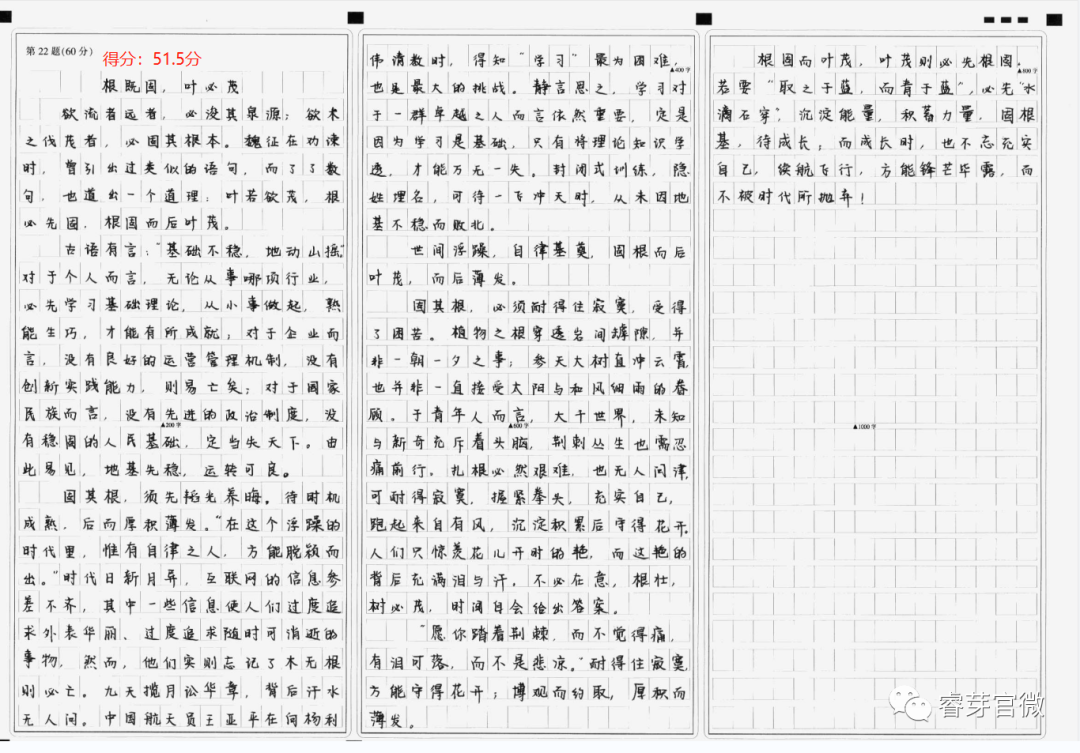 第22题(60分)
得分：51.5分
根既固，叶必茂
欲流者远者，必浚其泉源；欲木
之伐茂者，必固其根本。魏征在劝谏
时，曾引出过类似的语句，而了了数
句，也道出一个道理：叶若欲茂，根
必先固，根固而后叶茂。
古语有言："基础不稳，地动山摇"
对于个人而言，无论从事哪项行业，
必先学习基础理论，从小事做起，熟
能生巧，才能有所成就；对于企业而
言，没有良好的运营管理机制，没有
创新实践能力，则易亡矣；对于国家
民族而言，没有先进的政治制度，没
▲200字
有稳固的人民基础，定当失天下。由
此易见，地基先稳，运转可良。
固其根，须先韬光养晦。待时机
成熟，后而厚积薄发。"在这个浮躁的
时代里，惟有自律之人，方能脱颖而
出。"时代日新月异，互联网的信息参
差不齐，其中一些信息使人们过度追
求外表华丽、过度追求随时可消逝的
事物，然而，他们实则忘记了木无根
则必亡。九天揽月讼华章，背后汗水
无人问。中国航天员王亚平在问杨利
伟请教时，得知"学习"最为困难，
▲400字
也是最大的挑战。静言思之，学习对
于一群卓越之人而言依然重要，定是
因为学习是基础，只有将理论知识学
透，才能万无一失。封闭式训练，隐
姓埋名，可待一飞冲天时，从未因地
基不稳而败北。
世间浮躁，自律基奠，固根而后
叶茂，而后薄发。
固其根，必须耐得住寂寞，受得
了困苦。植物之根穿透岩间罅隙，并
非一朝一夕之事；参天大树直冲云霄，
也并非一直接受太阳与和风细雨的眷
顾。于青年人而言，大千世界，未知
▲600字
与新奇充斥着头脑，荆刺丛生也需忍
痛前行。扎根必然艰难，也无人问津，
可耐得寂寞，握紧拳头，充实自己，
跑起来自有风，沉淀积累后守得花开。
人们只惊羡花儿开时的艳，而这艳的
背后充满泪与汗，不必在意，根壮，
树必茂，时间自会给出答案。
"愿你踏着荆棘，而不觉得痛，
有泪可落，而不是悲凉。"耐得住寂寞，
方能守得花开；博观而约取，厚积而
薄发。
根固而叶茂，叶茂则必先根固。
▲800字
若要"取之于蓝，而青于蓝"，必先"水
滴石穿"，沉淀能量，积蓄力量，固根
基，待成长；而成长时，也不忘充实
自己，续航飞行，方能锋芒毕露，而
不被时代所抛弃！
▲1000字
睿芽官微